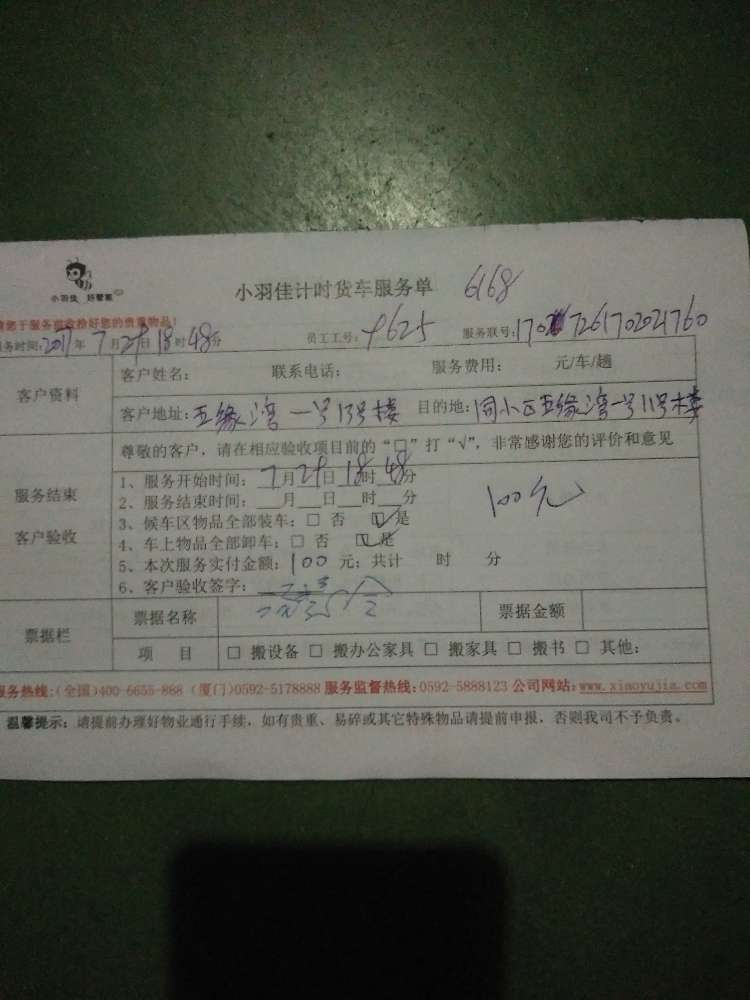 小羽佳 好管家
小羽佳计时货车服务单 6168
请您于服务前收拾好您的贵重物品!
服务时间:2017年7月29日18时48分 员工工号:9625 服务联号:
客户资料
客户姓名: 联系电话: 服务费用: 元/车/趟
客户地址:五缘湾一号13号楼 目的地:同小区五缘湾一号11号楼
尊敬的客户,请在相应验收项目前的“□”打“√”,非常感谢您的评价和意见
服务结束
客户验收
1、服务开始时间:7月29日18时48分
2、服务结束时间:___月___日___时___分
100元
3、候车区物品全部装车:□ 否 ☑ 是
4、车上物品全部卸车:□ 否 ☑ 是
5、本次服务实付金额:100元;共计 时 分
6、客户验收签字:
票据栏
票据名称 票据金额
项 目 □ 搬设备 □ 搬办公家具 □ 搬家具 □ 搬书 □ 其他:
服务热线:(全国)400-6655-888 (厦门)0592-5178888 服务监督热线:0592-5888123 公司网站:www.xiaoyujia.com
温馨提示:请提前办理好物业通行手续,如有贵重、易碎或其它特殊物品请提前申报,否则我司不予负责。